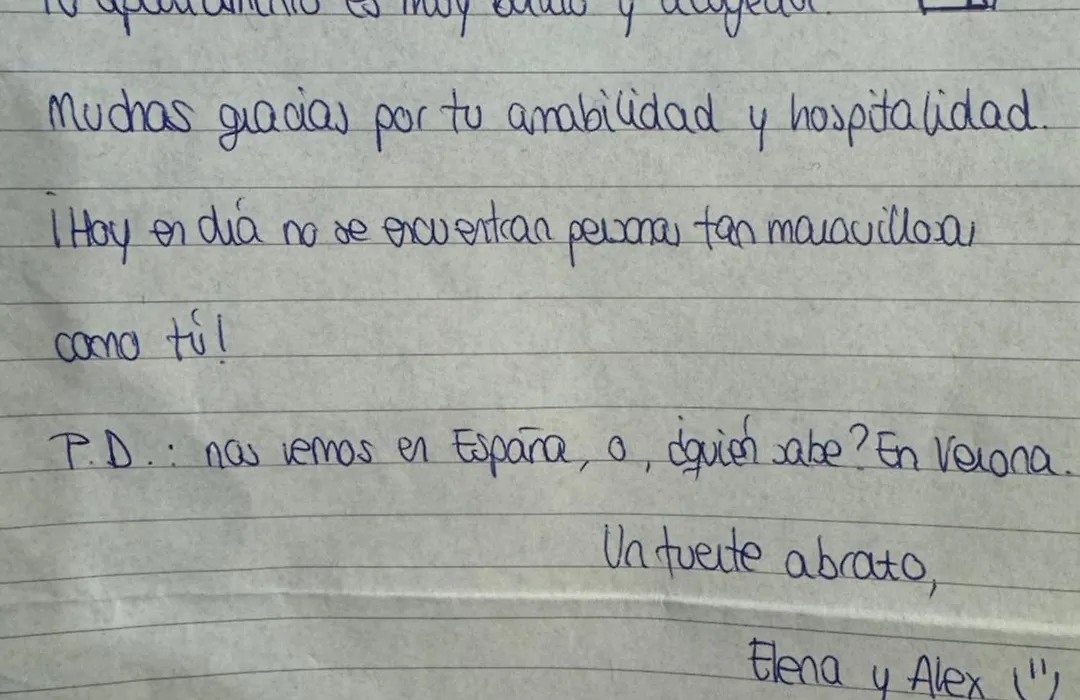 Tu apartamento es muy bonito y acogedor.
Muchas gracias por tu amabilidad y hospitalidad.
¡Hoy en día no se encuentran personas tan maravillosas
como tú!
P.D.: nos vemos en España, o, ¿quién sabe? En Verona.
Un fuerte abrazo,
Elena y Alex (")